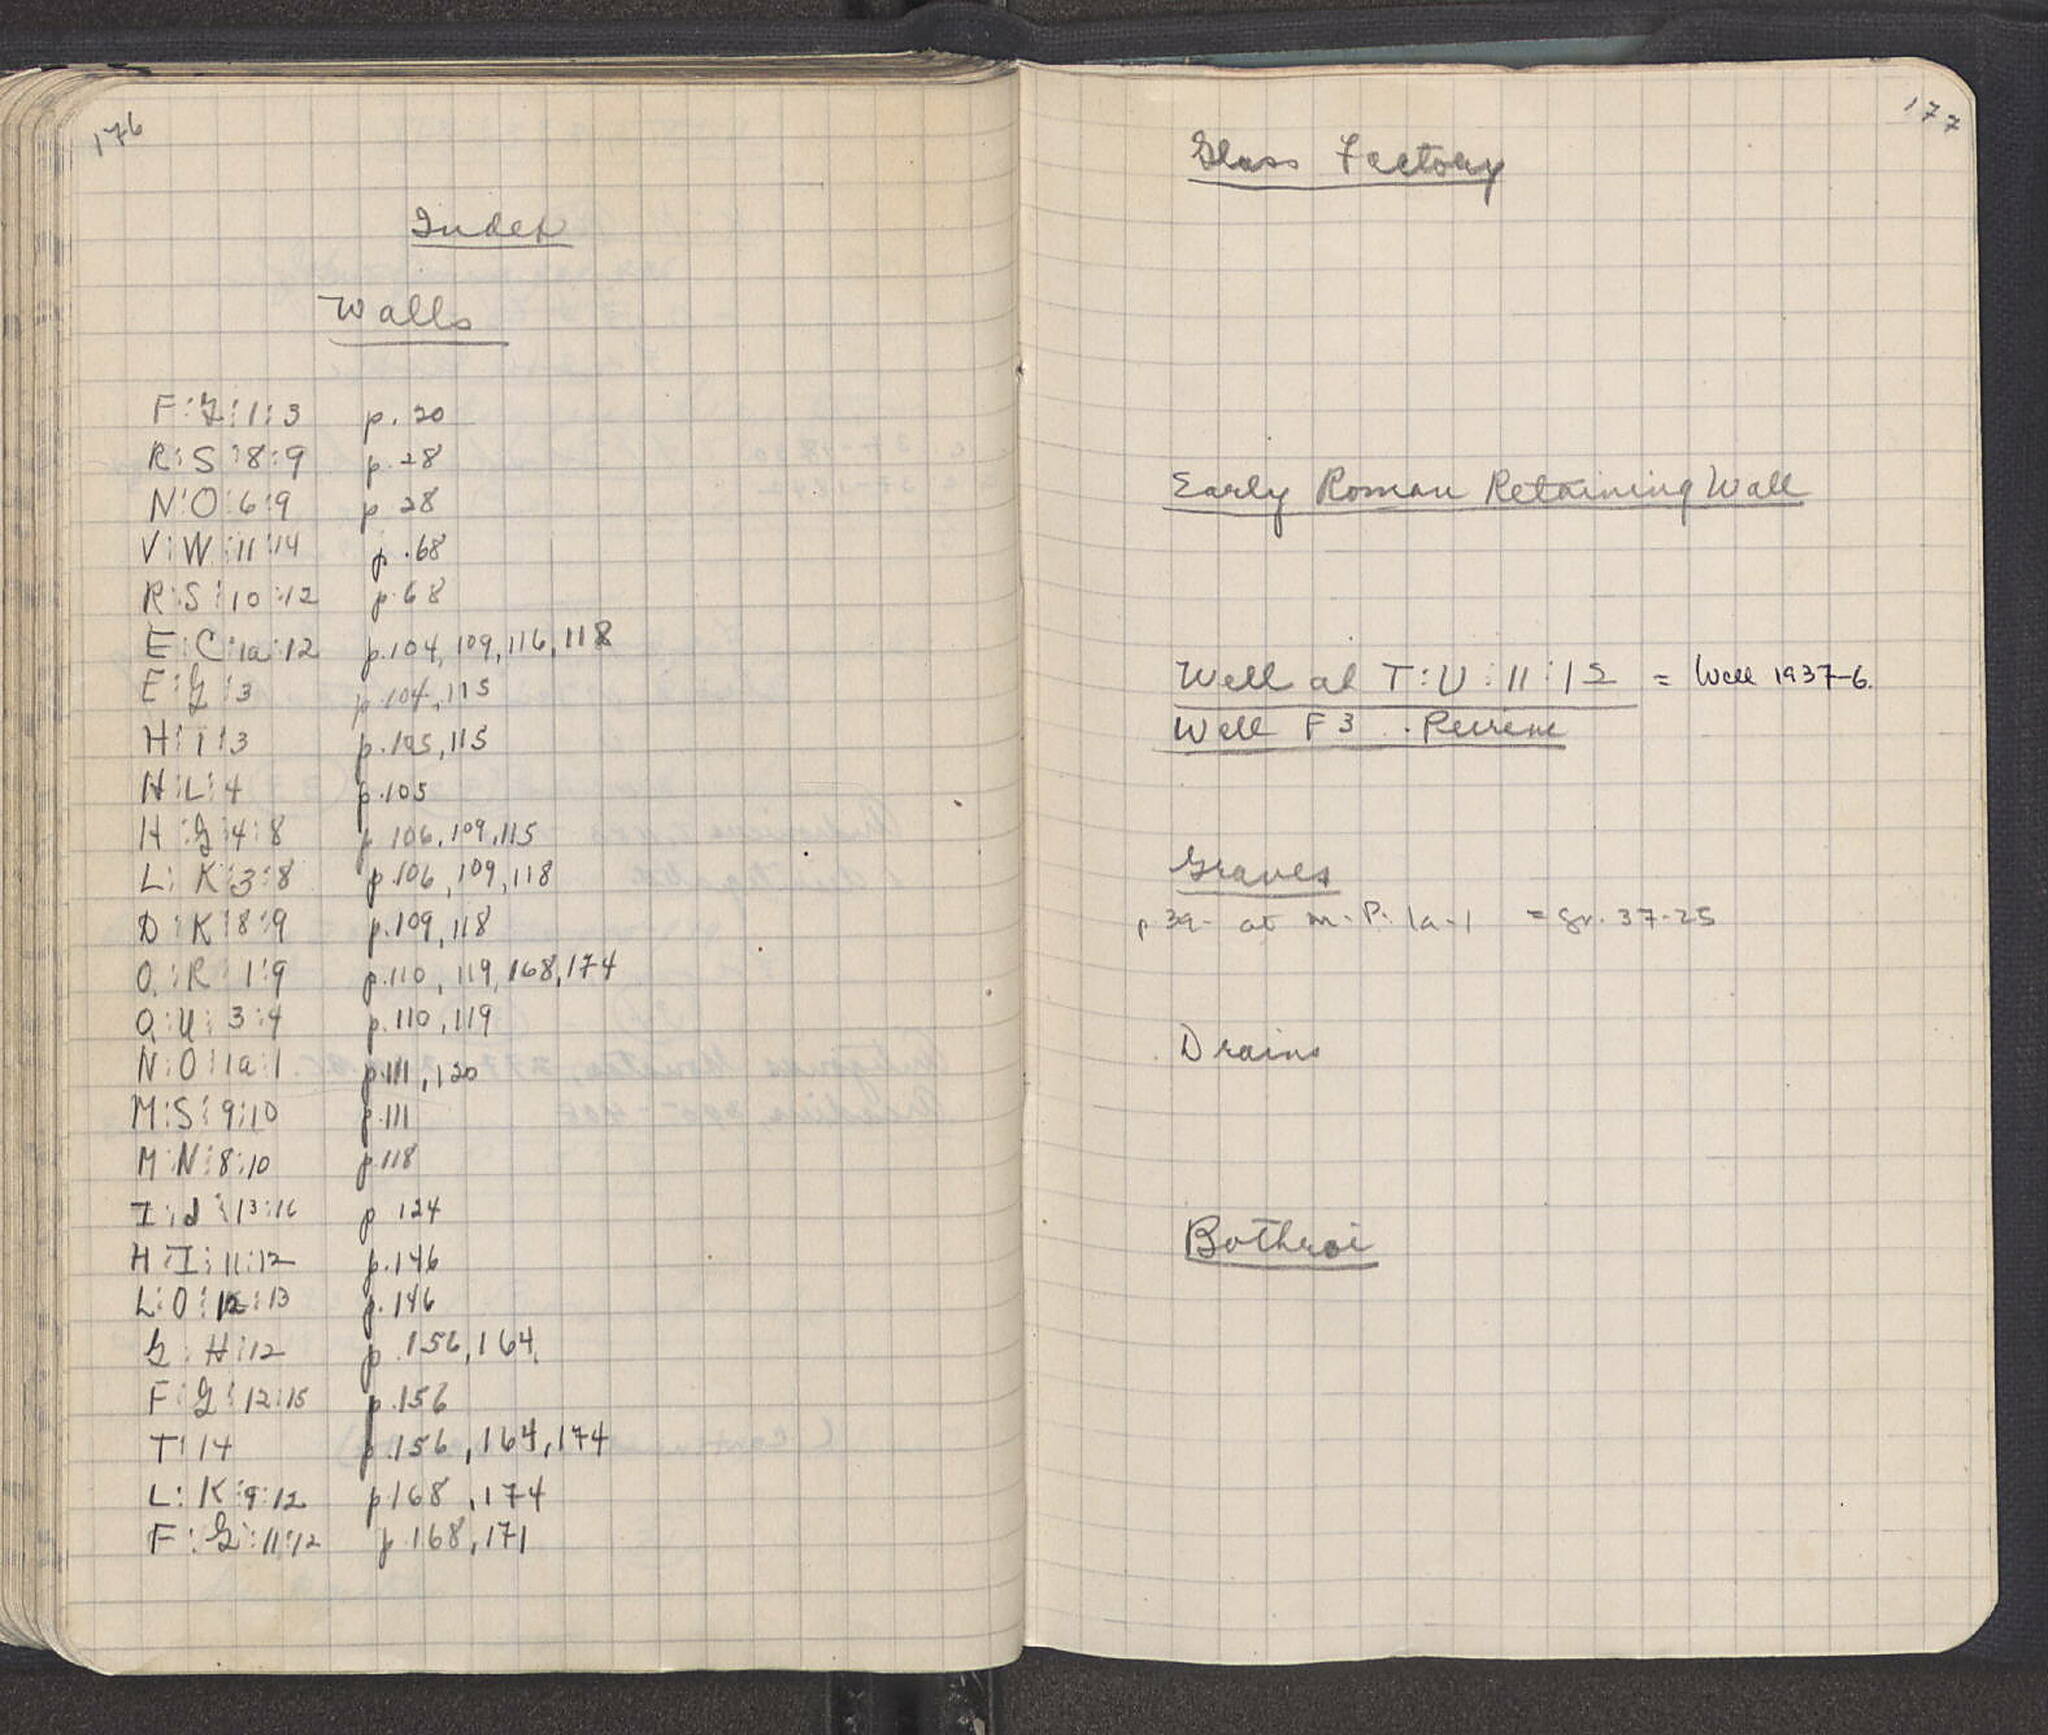 176
Index
Walls
F:G:1:3 p. 20
R:S:8:9 p. 28
N:O:6:9 p 28
V:W:11:14 p. 68
R:S:10:12 p. 68
E:C:1a:12 p. 104, 109, 116, 118
E:G:3 p. 104, 115
H:I:3 p. 105, 115
H:L:4 p. 105
H:G:4:8 p 106, 109, 115
L:K:3:8 p. 106, 109, 118
D:K:8:9 p. 109, 118
O:R:1:9 p. 110, 119, 168, 174
Q:U:3:4 p. 110, 119
N:O:1a:1 p. 111, 120
M:S:9:10 p. 111
M:N:8:10 p 118
I:J:13:16 p 124
H:I:11:12 p. 146
L:O:12:13 p. 146
G:H:12 p. 156, 164,
F:G:12:15 p. 156
T:14 p. 156, 164, 174
L:K:9:12 p 168, 174
F:G:11:12 p 168, 171
177
Glass Factory
Early Roman Retaining Wall
Well at T:U:11:12 = Well 1937-6.
Well F3. Peirene
Graves
p 39- at M-P. 1a-1 = gr. 37-25
Drains
Bothroi